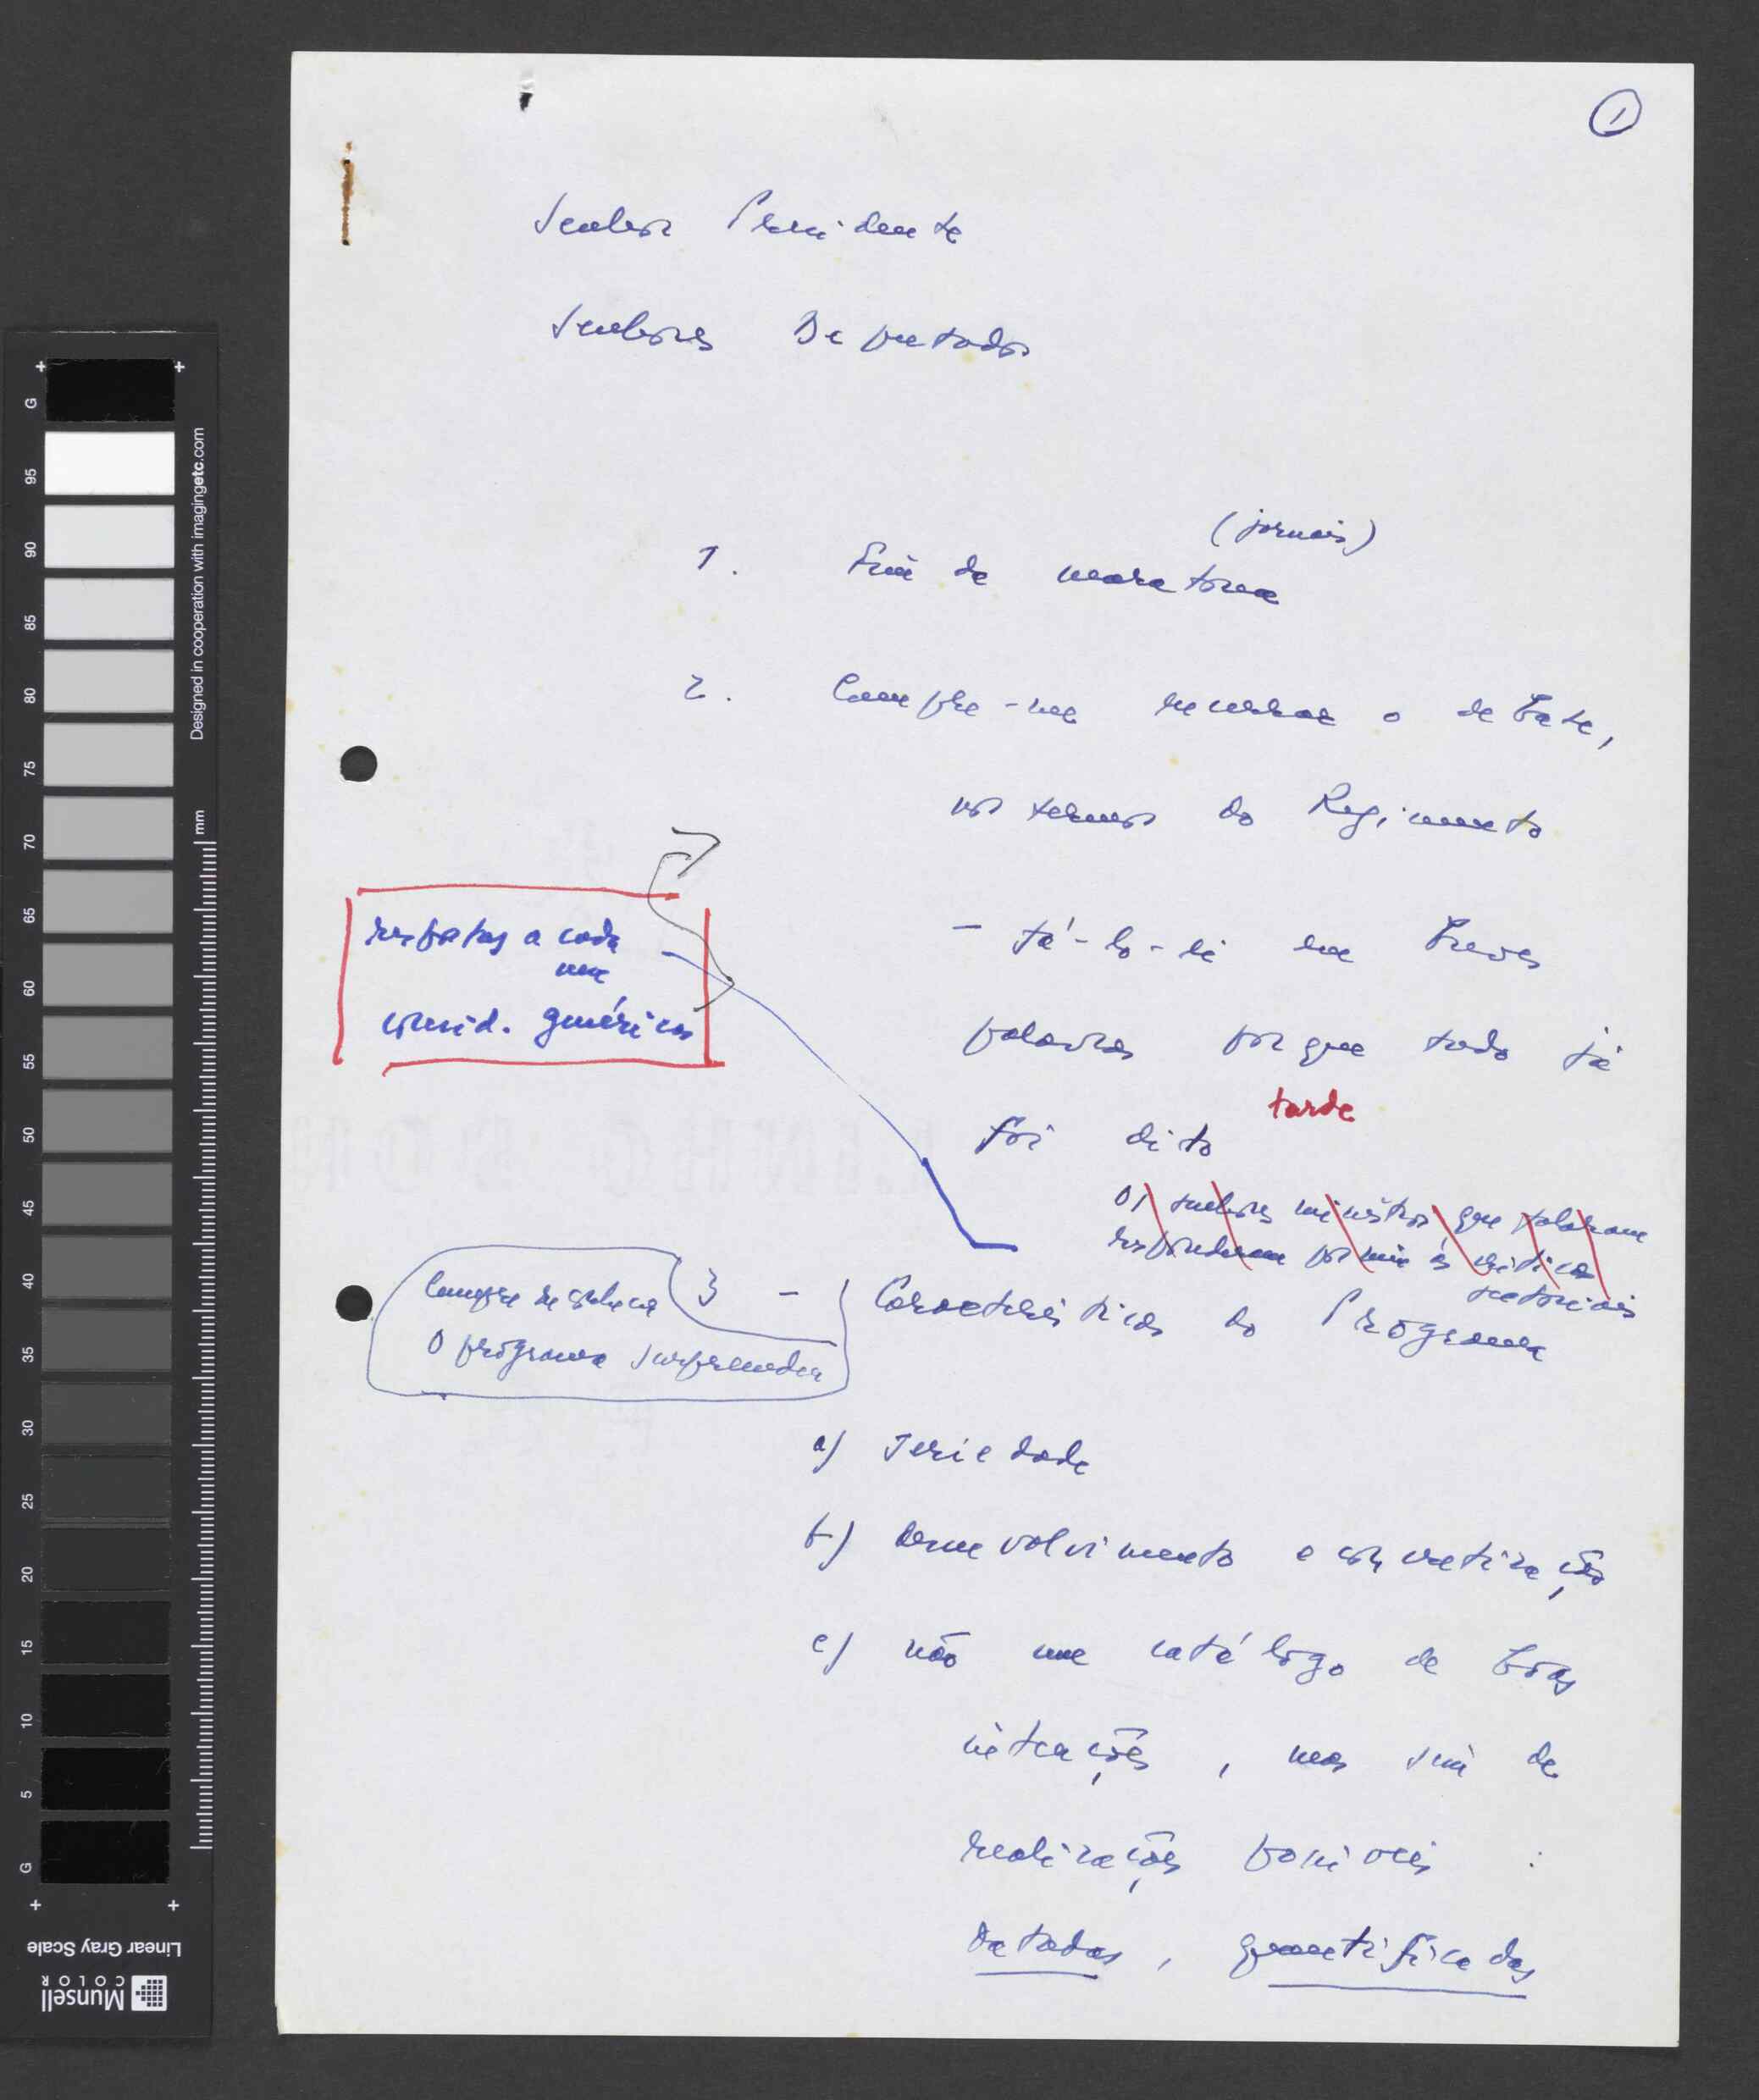 1
Senhor Presidente
Senhores Deputados
(jornais)
1. Fim de maratona
2. Cumpre-me encerrar o debate,
nos termos do Regimento
- fá-lo-ei em breves
palavras porque tudo já
foi dito
tarde
os senhores ministros que falaram
responderam por mim às críticas
setoriais
respostas a cada
um
consid. genéricas
Cumpre
O programa surpreendeu
3 - Características do Programa
a) seriedade
b) desenvolvimento e concretização
c) não um catálogo de boas
intenções, mas sim de
realizações possíveis :
datadas, quantificadas
G
95
90
85
80
75
70
65
60
55
50
45
40
35
30
25
20
15
10
5
G
Designed in cooperation with imagingetc.com
mm
Linear Gray Scale
Munsell
COLOR